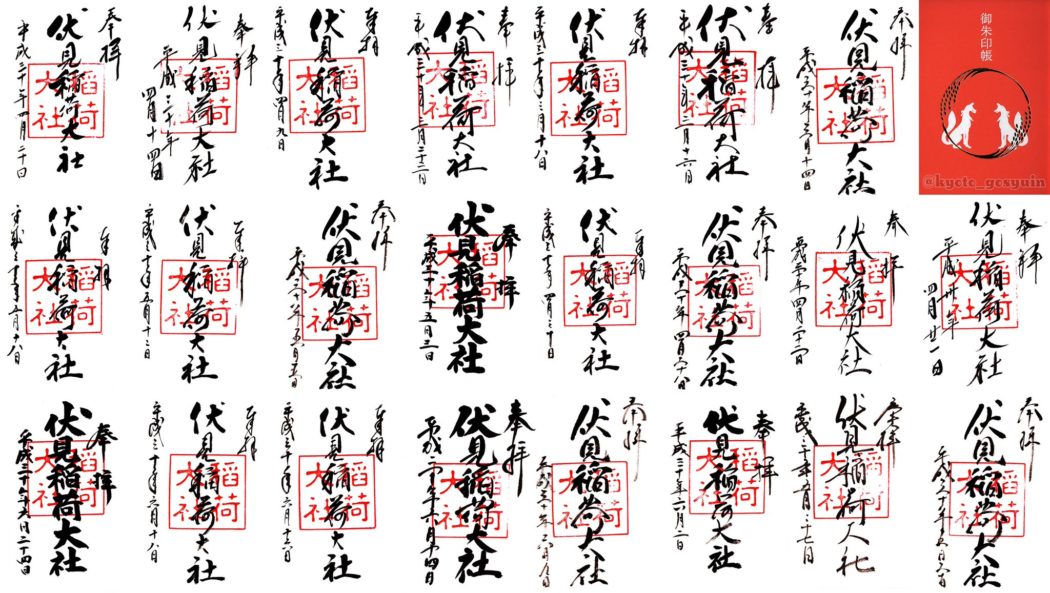 御朱印帳
@kyoto_gosyuin
奉拝
伏見稲荷大社
稲荷大社
平成三十年三月十四日
奉拝
伏見稲荷大社
稲荷大社
平成三十年三月十六日
奉拝
伏見稲荷大社
稲荷大社
平成三十年三月十八日
奉拝
伏見稲荷大社
稲荷大社
平成三十年三月二十二日
奉拝
伏見稲荷大社
稲荷大社
平成三十年四月九日
奉拝
伏見稲荷大社
稲荷大社
平成三十年
四月十四日
奉拝
伏見稲荷大社
稲荷大社
平成三十年四月二十日
奉拝
伏見稲荷大社
稲荷大社
平成卅年
四月廿一日
奉拝
伏見稲荷大社
稲荷大社
奉拝
伏見稲荷大社
稲荷大社
平成三十年四月二十八日
奉拝
伏見稲荷大社
稲荷大社
平成三十年四月三十日
奉拝
伏見稲荷大社
稲荷大社
平成三十年五月三日
奉拝
伏見稲荷大社
稲荷大社
平成三十年五月五日
奉拝
伏見稲荷大社
稲荷大社
平成三十年五月十二日
奉拝
伏見稲荷大社
稲荷大社
平成三十年五月十八日
奉拝
伏見稲荷大社
稲荷大社
奉拝
伏見稲荷大社
稲荷大社
平成三十年五月二十七日
奉拝
伏見稲荷大社
稲荷大社
平成三十年六月二日
奉拝
伏見稲荷大社
稲荷大社
奉拝
伏見稲荷大社
稲荷大社
平成三十年六月十四日
奉拝
伏見稲荷大社
稲荷大社
平成三十年六月十六日
奉拝
伏見稲荷大社
稲荷大社
平成三十年六月十八日
奉拝
伏見稲荷大社
稲荷大社
平成三十年六月二十四日